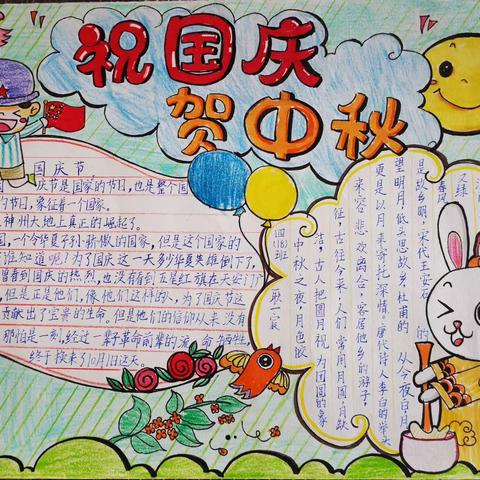 祝国庆
贺中秋
国庆节
国庆节是国家的节日,也是整个国
的节日,象征着一个国家。
神州大地上真正的崛起了。
国,一个令华夏子孙骄傲的国家,但是这个国家的
谁知道呢!为了国庆这一天多少华夏英雄倒下了,
曾看到国庆的热烈,也没有看到五星红旗在天安门广
,但是正是他们,像他们这样的人,为了国庆节这
贡献出了宝贵的生命。但是他们的信仰从来没有
那怕是一刻,经过一辈革命前辈的流血牺牲,
终于换来了10月1日这天。
四(8)班
中秋之夜,月色皎
洁,古人把圆月视为团圆的象
征,古往今来,人们常用月圆,月缺
来容悲欢离合,客居他乡的游子,
更是以月来寄托深情。唐代诗人李白的举头
望明月,低头思故乡,杜甫的 从今夜白月
是故乡明,宋代王安石的
春风又绿